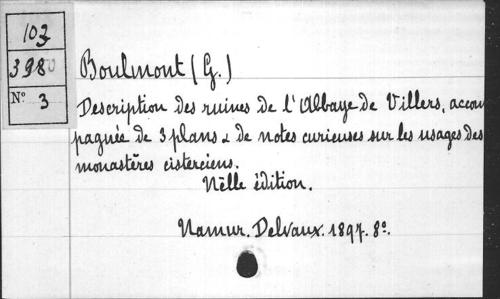 103
3980
Nº 3
Boulmont (G.)
Description des ruines de l'Abbaye de Villers, accom
pagnée de 3 plans & de notes curieuses sur les usages des
monastères cisterciens.
Nèlle édition.
Namur. Delvaux. 1897. 8º.